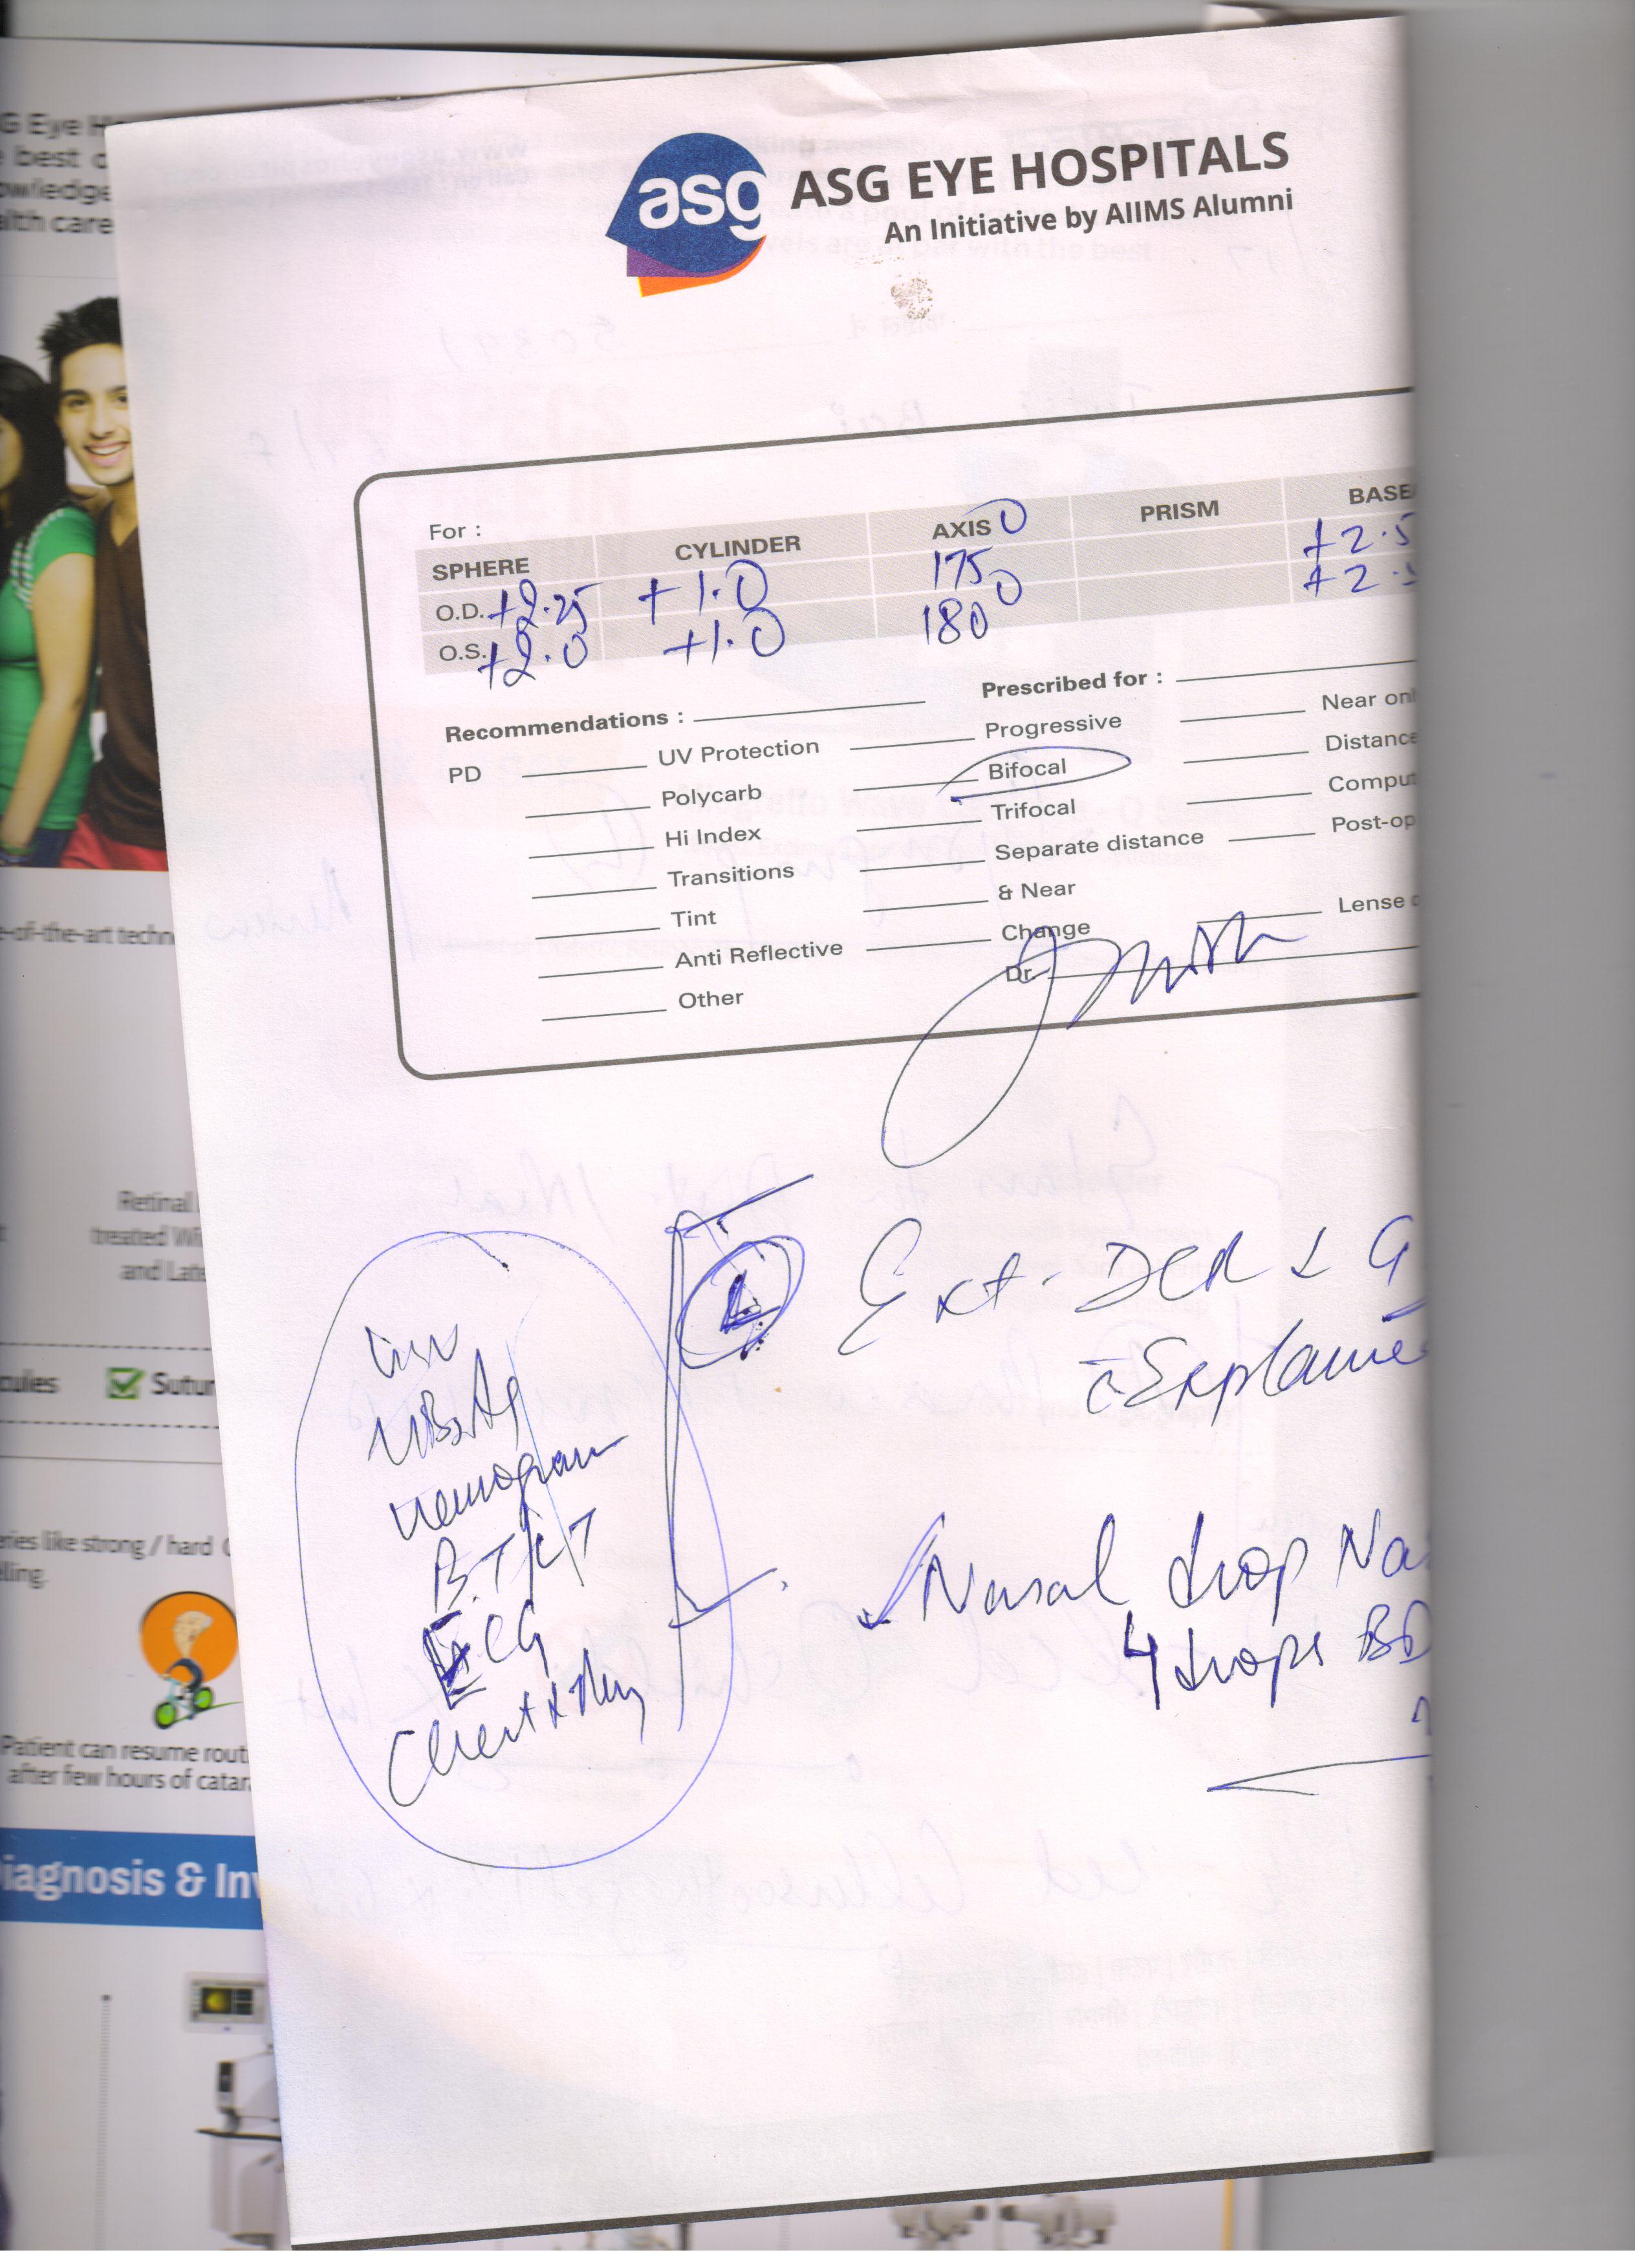 G Eye H
best c
owledge
alth care
asg
ASG EYE HOSPITALS
An Initiative by AIIMS Alumni
For :
SPHERE CYLINDER AXIS 0 PRISM BASE
O.D. +2.25 +1.0 175 0 +2.5
O.S. +2.0 +1.0 180 +2.
Recommendations : Prescribed for :
PD UV Protection Progressive Near on
Polycarb Bifocal Distance
Hi Index Trifocal Comput
Transitions Separate distance Post-op
Tint & Near
Anti Reflective Change Lense
Other Dr.
e-of-the-art techn
Retinal
treated Wi
and Late
cules Sutur
eries like strong / hard
lling.
Patient can resume rout
after few hours of catar
iagnosis & Inv
L Ext. DCR & G
c Explaine
HBsAg
Hemogram
B.T/CT
ECG
Chest X Ray
Nasal drop Na
4 drops BD